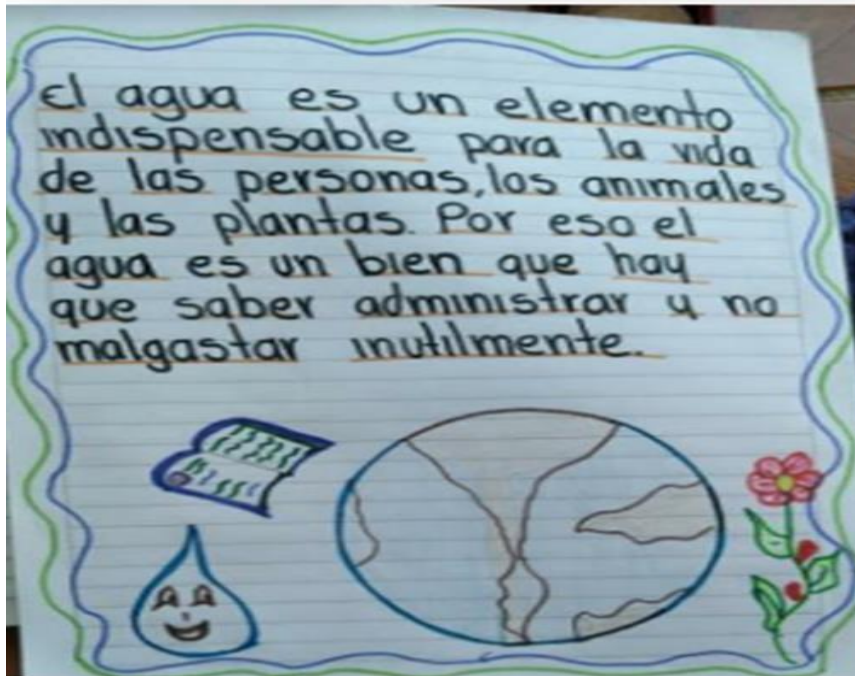 El agua es un elemento
indispensable para la vida
de las personas, los animales
y las plantas. Por eso el
agua es un bien que hay
que saber administrar y no
malgastar inutilmente.